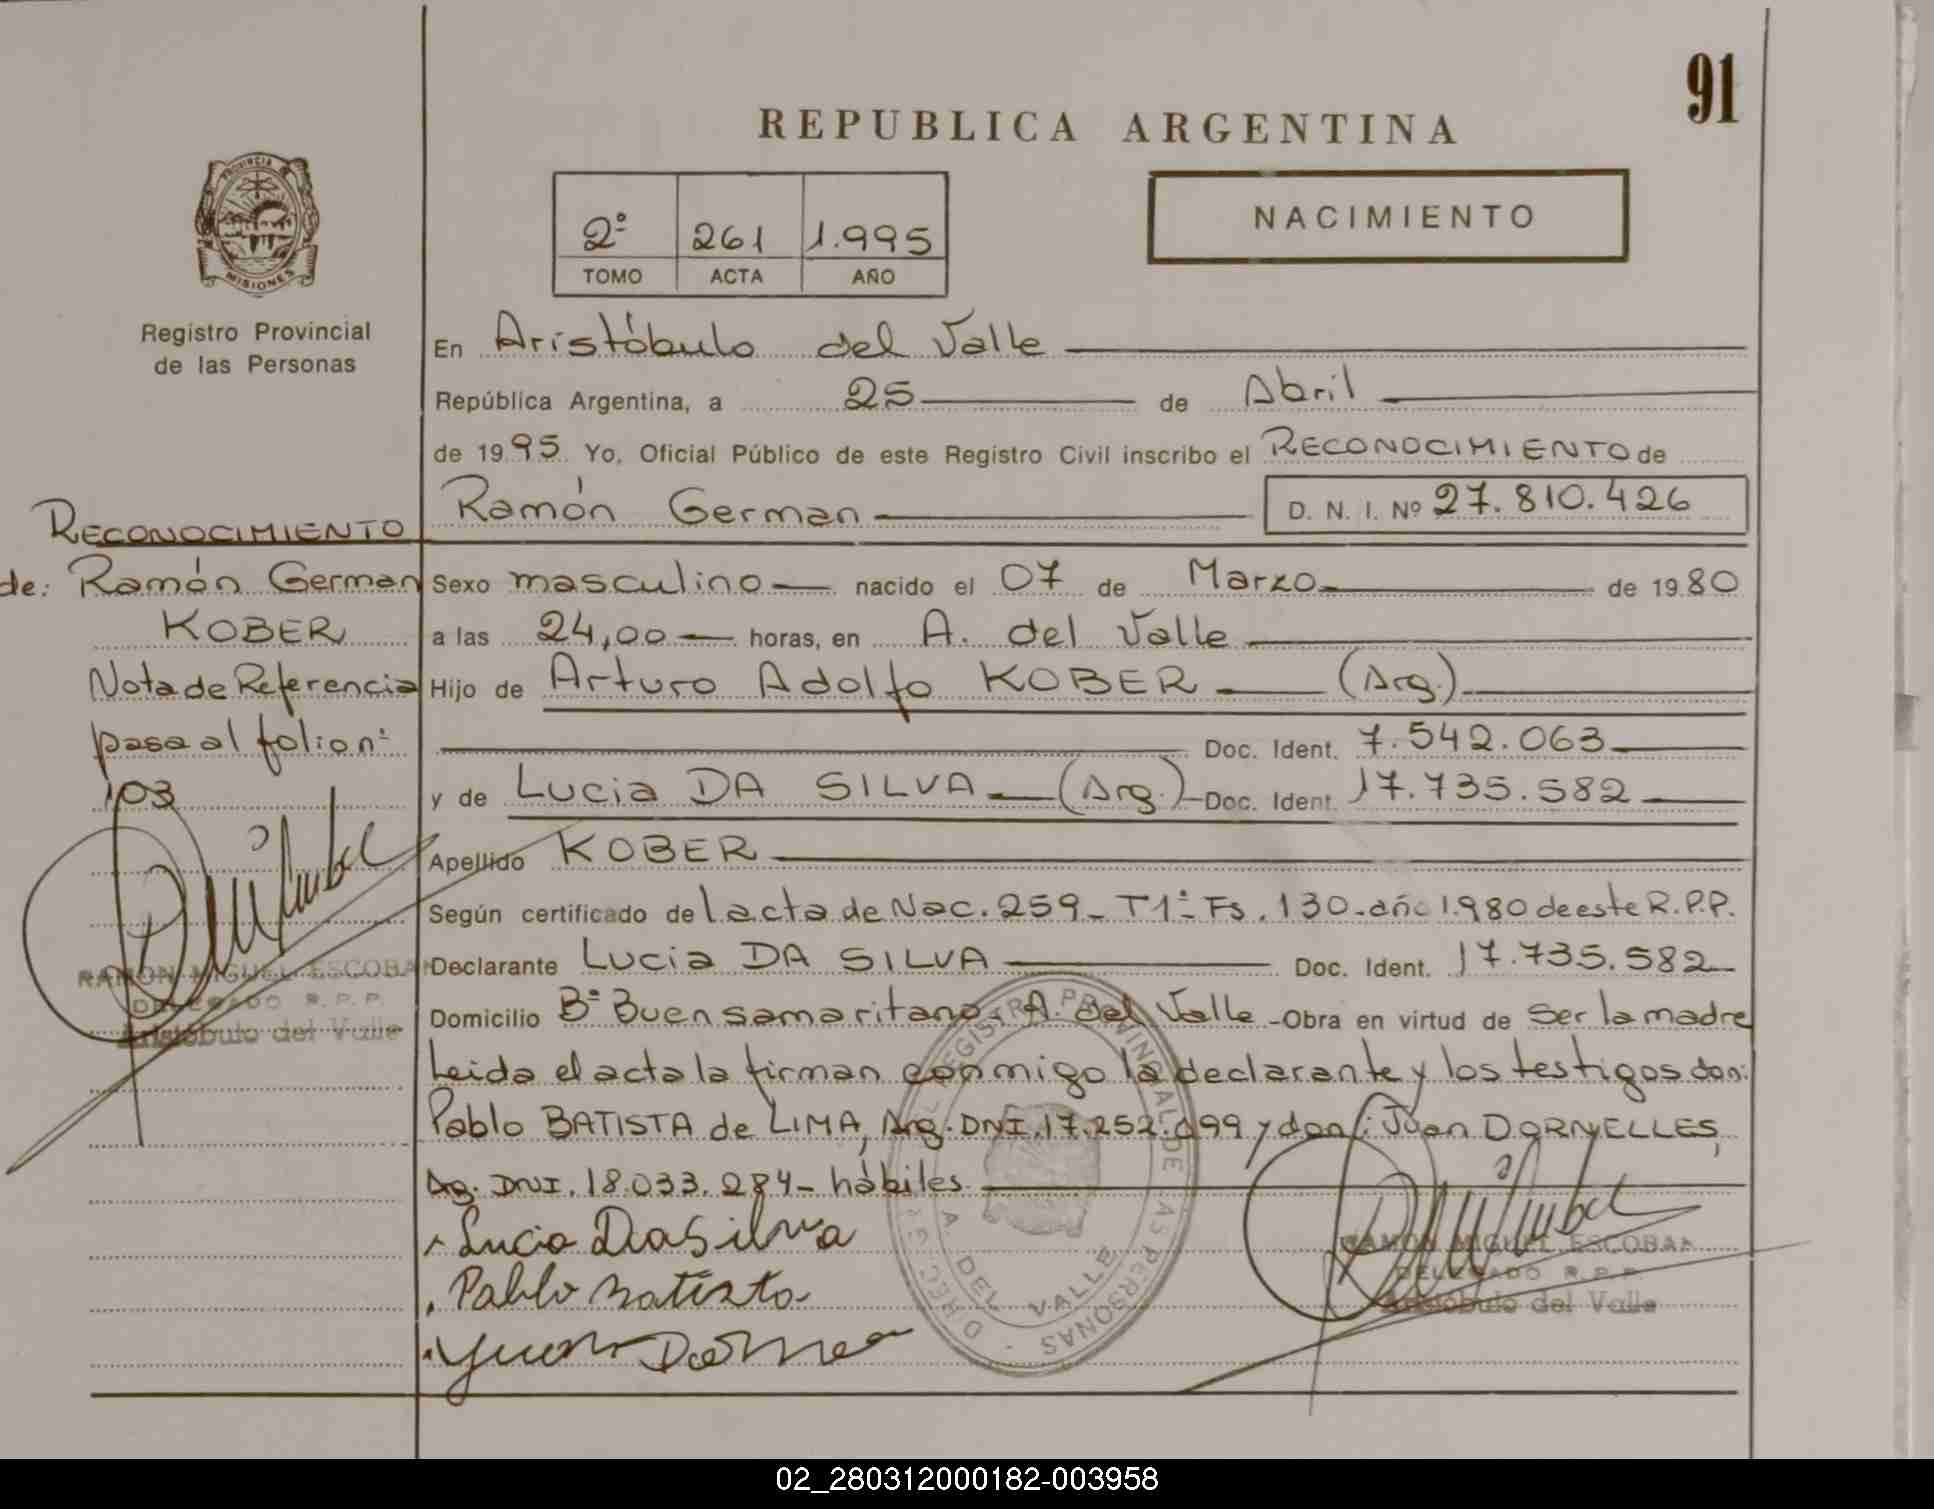 91
REPUBLICA ARGENTINA
PROVINCIA
MISIONES
Registro Provincial
de las Personas
2º 261 1.995
TOMO ACTA AÑO
NACIMIENTO
En Aristóbulo del Valle
República Argentina, a 25 de Abril
de 1995 Yo, Oficial Público de este Registro Civil inscribo el RECONOCIMIENTO de
Ramón German D. N. I. Nº 27.810.426
Sexo masculino nacido el 07 de Marzo de 1980
a las 24,00 horas, en A. del Valle
Hijo de Arturo Adolfo KOBER (Arg.)
Doc. Ident. 7.542.063
y de Lucia DA SILVA (Arg.) Doc. Ident. 17.735.582
Apellido KOBER
Según certificado del acta de Nac. 259- T1º- Fs. 130-año 1.980 de este R.P.P.
Declarante Lucia DA SILVA Doc. Ident. 17.735.582
Domicilio Bº Buen samaritano, A. del Valle - Obra en virtud de Ser la madre
Leida el acta la firman conmigo la declarante y los testigos don:
Pablo BATISTA de LIMA, Arg. DNI. 17.252.099 y don: Juan DORNELLES,
Arg. DNI. 18.033.284- hábiles
Lucia Da Silva
Pablo Batista
RAMON MIGUEL ESCOBAR
DELEGADO R.P.P.
Aristóbulo del Valle
REGISTRO PROVINCIAL DE LAS PERSONAS
A. DEL VALLE
RECONOCIMIENTO
de: Ramón German
KOBER
Nota de Referencia
pasa al folio nº
103
RAMON MIGUEL ESCOBAR
DELEGADO R.P.P.
Aristóbulo del Valle
02_280312000182-003958